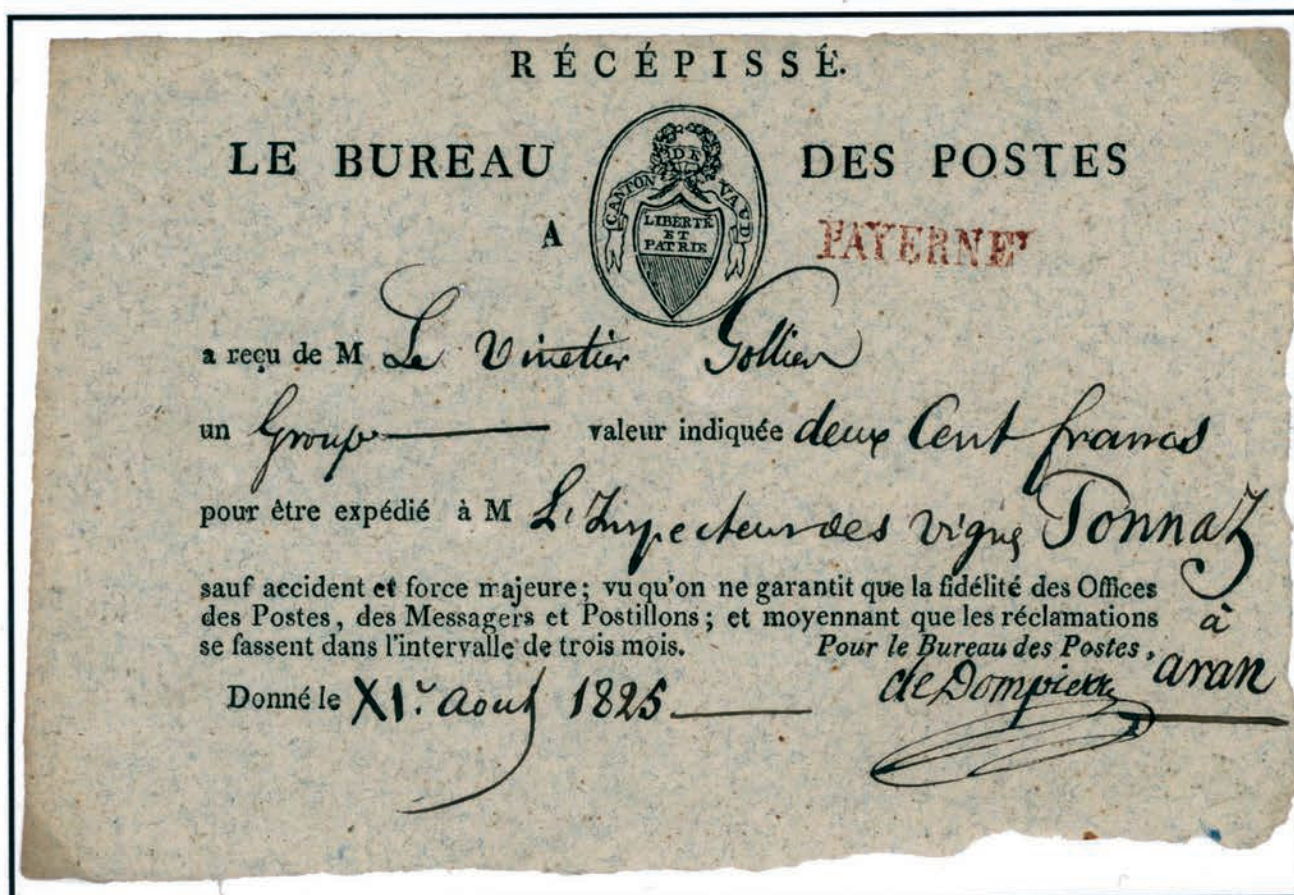 RÉCÉPISSÉ.
LE BUREAU DES POSTES
CANTON DE VAUD
LIBERTÉ
ET
PATRIE
A PAYERNE
a reçu de M Le Vinetier Gollien
un Group valeur indiquée deux Cent francs
pour être expédié à M L'Inspecteur des vignes Ponnaz
sauf accident et force majeure; vu qu'on ne garantit que la fidélité des Offices
des Postes, des Messagers et Postillons; et moyennant que les réclamations à
se fassent dans l'intervalle de trois mois. Pour le Bureau des Postes, aran
Donné le XI. aout 1825 de Dompierre